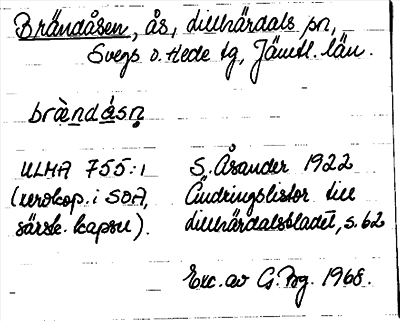 Brändåsen, ås, Lillhärdals sn,
Svegs o. Hede tg, Jämtl. län.
brä̀ndåsn̥
ULMA 755:1 S. Åsander 1922
(xerokop. i SOA, Ändringslistor till
särsk. kapsel). Lillhärdalsbladet, s. 62
Exc. av G. Bg. 1968.